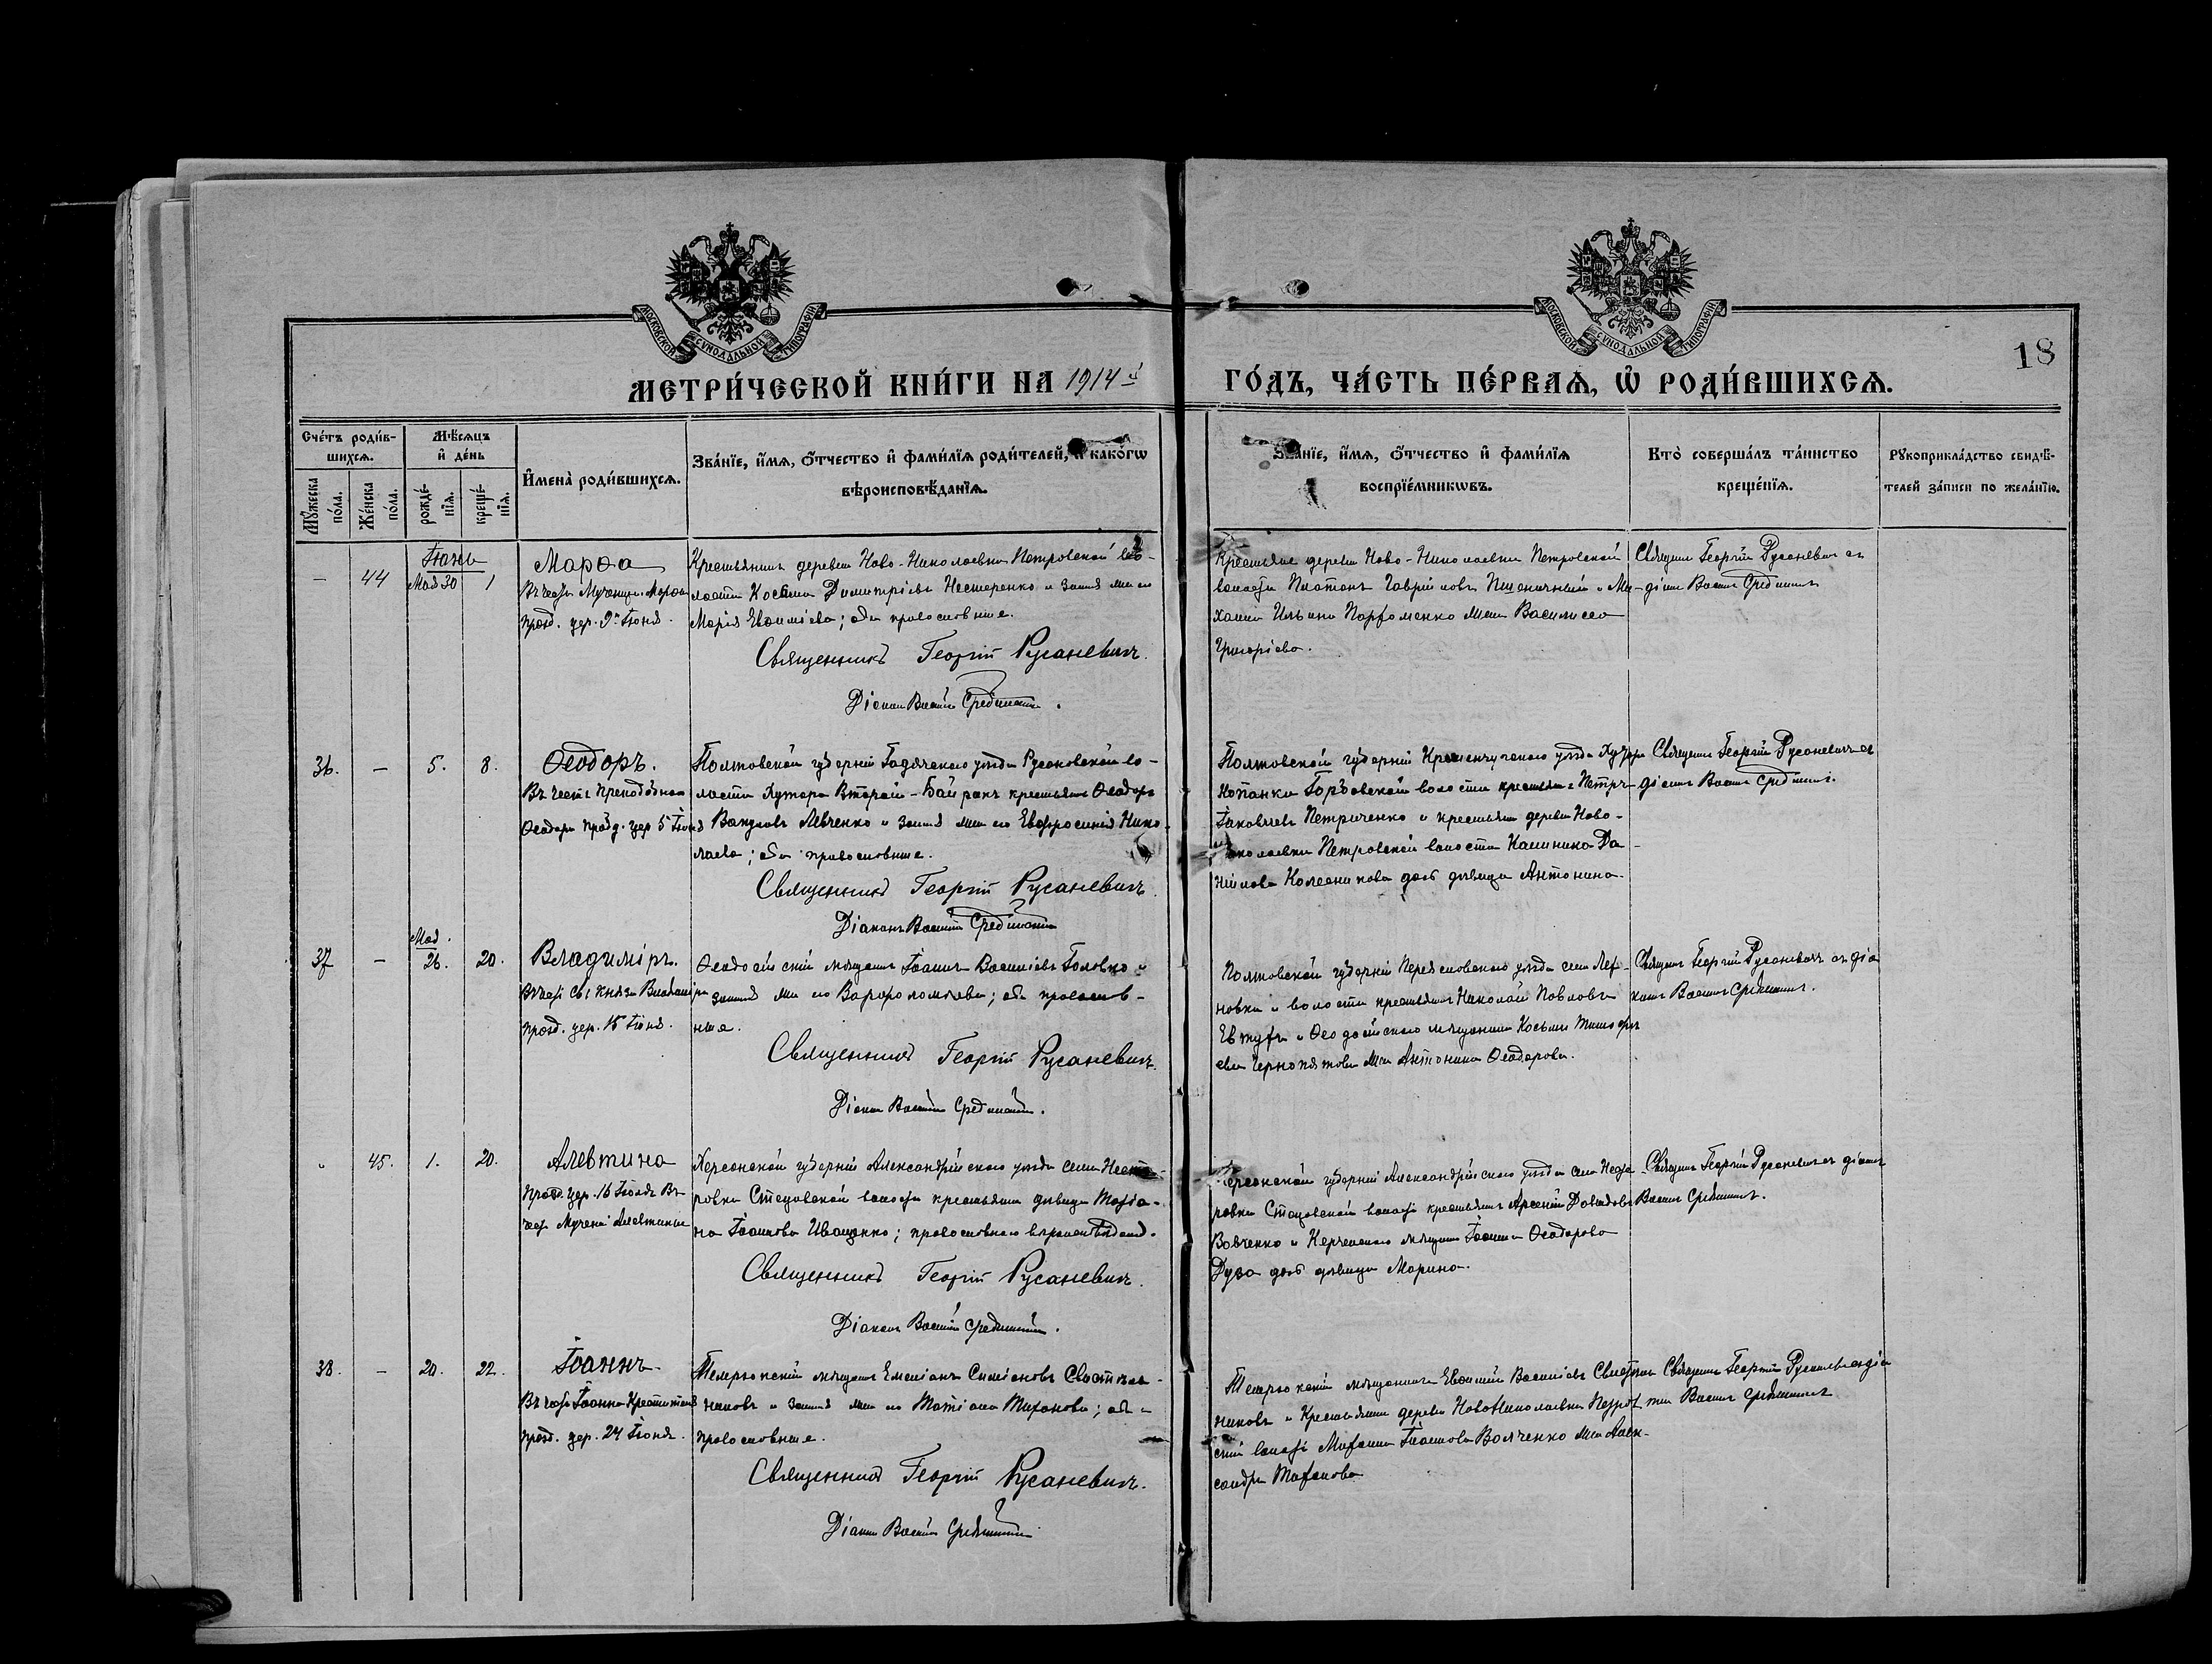 МОСКОВСКОЙ СѴНОДАЛЬНОЙ ТИПОГРАФІИ
МОСКОВСКОЙ СѴНОДАЛЬНОЙ ТИПОГРАФІИ
18
МЕТРИ́ЧЕСКОЙ КНИ́ГИ НА 1914 й
ГО́ДЪ, ЧА́СТЬ ПЕ́РВАѦ, Ѡ РОДИ́ВШИХСѦ.
Сче́тъ роди́в-
шихсѧ.
Мѣ́сѧцъ
и҆ де́нь
Мꙋ́жеска
по́ла.
Же́нска
по́ла.
рожде́-
нїѧ.
креще́-
нїѧ.
И҆мена̀ роди́вшихсѧ.
Зва́нїе, и҆́мѧ, ѻ҆́тчество и҆ фами́лїѧ роди́телей, и҆ како́гѡ
вѣроисповѣ́данїѧ.
Зва́нїе, и҆́мѧ, ѻ҆́тчество и҆ фами́лїѧ
воспрїе́мникѡвъ.
Кто̀ соверша́лъ та́инство
креще́нїѧ.
Рꙋкоприкла́дство свидѣ́-
телей за́писи по жела́нїю.
Іюнь
– 44 Мая 30 1
Марѳа
Въ честь Мученицы Марѳы
празд. цер. 9го Іюня.
Крестьянинъ деревни Ново-Николаевки Петровской во-
лости Косьма Димитріевъ Нестеренко и законная жена его
Марія Евѳиміева; оба православные.
Священникъ Георгій Русаневичъ.
Діаконъ Василій
Крестьяне деревни Ново-Николаевки Петровской
волости Платонъ Гавріиловъ Пшеничный и Ми-
хаила Ильина Парфоменко жена Василиса
Григоріева.
Священникъ Георгій Русаневичъ съ
діакономъ Василіемъ
36. – 5. 8.
Ѳеодоръ.
Въ честь Преподобнаго
Ѳеодора празд. цер 5 Іюня
Полтавской губерніи Гадячскаго уѣзда Русановской во-
лости Хутора Второй-Байракъ крестьянинъ Ѳеодоръ
Левченко и законная жена его Евфросинія Нико-
лаева; оба православные.
Священникъ Георгій Русаневичъ.
Діаконъ Василій
Полтавской губерніи Кременчугскаго уѣзда Хутора
Копанки волости крестьянинъ Петръ
Іаковлевъ Петриченко и крестьянина деревни Ново-
Николаевки Петровской волости Калиника Да-
ніилова Колесникова дочь дѣвица Антонина.
Священникъ Георгій Русаневичъ съ
діакономъ Василіемъ
37 – Мая 26. 20.
Владиміръ.
Въ честь Св. Князя Владиміра
празд. цер. 15 Іюля.
Ѳеодосійскій мѣщанинъ Іоаннъ Василіевъ Головко и
законная жена его Варѳоломѣева; оба православ-
ные.
Священникъ Георгій Русаневичъ.
Діаконъ Василій
Полтавской губерніи Переяславскаго уѣзда села
новки и волости крестьянинъ Николай Павловъ
и Ѳеодосійскаго мѣщанина Косьмы Тимоѳе-
ева жена Антонина Ѳеодорова.
Священникъ Георгій Русаневичъ съ діа-
кономъ Василіемъ
" 45. 1. 20.
Алевтина
празд. цер. 16 Іюля Въ
честь Мучениц. Алевтины
Херсонской губерніи Александрійскаго уѣзда села
ровки волости крестьянка дѣвица Татіа-
на Іоаннова Иващенко; православнаго вѣроисповѣданія.
Священникъ Георгій Русаневичъ.
Діаконъ Василій
Херсонской губерніи Александрійскаго уѣзда села
ровки волости крестьянинъ Арсеній Давидовъ
Вовченко и Керченскаго мѣщанина Іоанна Ѳеодорова
дочь дѣвица Марина.
Священникъ Георгій Русаневичъ съ діакономъ
Василіемъ
38. – 20. 22.
Іоаннъ
Въ честь Іоанна Крестителя
празд. цер. 24 Іюня.
Темрюкскій мѣщанинъ Емеліанъ Симеоновъ
никовъ и законная жена его Татіана Тихонова; оба
православные.
Священникъ Георгій Русаневичъ.
Діаконъ Василій
Темрюкскій мѣщанинъ Евѳимій Василіевъ
никовъ и крестьянина деревни Ново-Николаевки Петров-
ской волости Іоаннова жена Алек-
сандра
Священникъ Георгій Русаневичъ съ діа-
Василіемъ